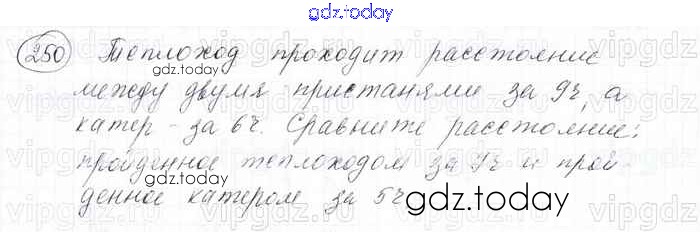 gdz.today
250 Теплоход проходит расстояние
между двумя пристанями за 9ч, а
катер - за 6ч. Сравните расстояние:
пройденное теплоходом за 7ч и прой-
денное катером за 5ч
gdz.today
gdz.today